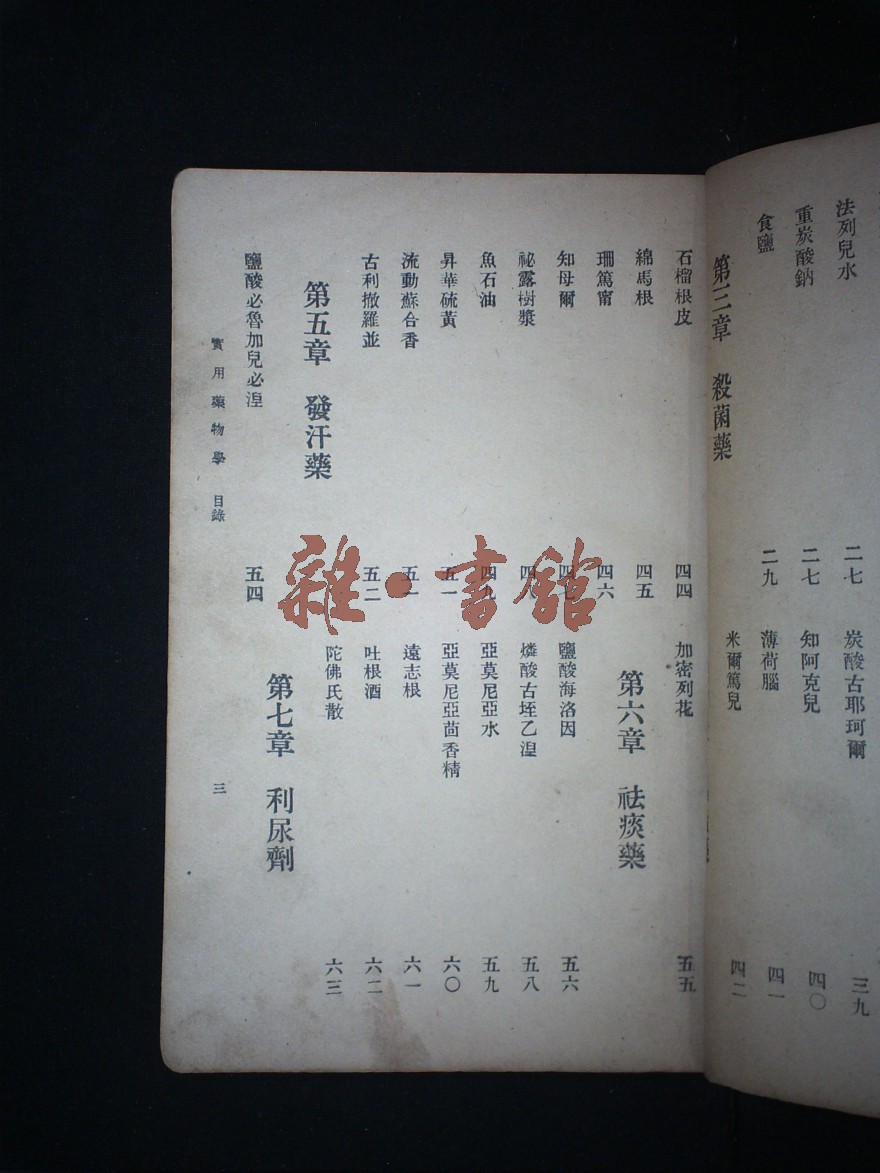 法列兒水 二七
重炭酸鈉 二七
食鹽 二九
第三章 殺菌藥
炭酸古耶珂爾 三九
知阿克兒 四〇
薄荷腦 四一
米爾篤兒 四二
石榴根皮 四四
綿馬根 四五
珊篤甯 四六
知母爾 四七
祕露樹漿 四八
魚石油 四九
昇華硫黃 五一
流動蘇合香 五一
古利撤羅並 五二
第五章 發汗藥
鹽酸必魯加兒必湼 五四
加密列花 五五
第六章 祛痰藥
鹽酸海洛因 五六
燐酸古垤乙湼 五八
亞莫尼亞水 五九
亞莫尼亞茴香精 六〇
遠志根 六一
吐根酒 六二
陀佛氏散 六三
第七章 利尿劑
實用藥物學 目錄 三
雜·書館